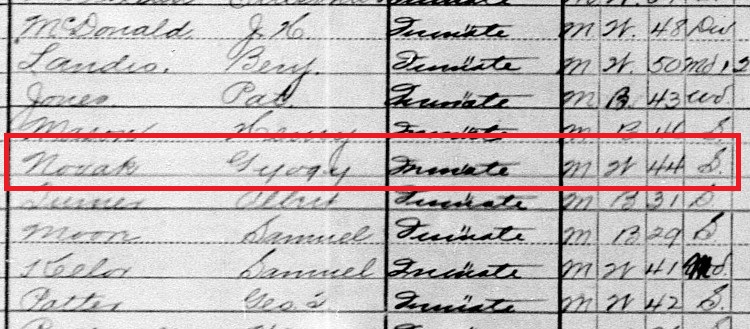 McDonald J. H. Inmate M W 48 Div
Landis. Benj. Inmate M W. 50 Md 12
Jones Pat. Inmate M B 43 Wd
Mason Henry Inmate M B S.
Novak Gyogy Inmate M W 44 S.
Turner Albert Inmate M B 31 S
Moon Samuel Inmate M B 29 S
Samuel Inmate M W 41 Md.
Potter Geo. Inmate M W 42 S.